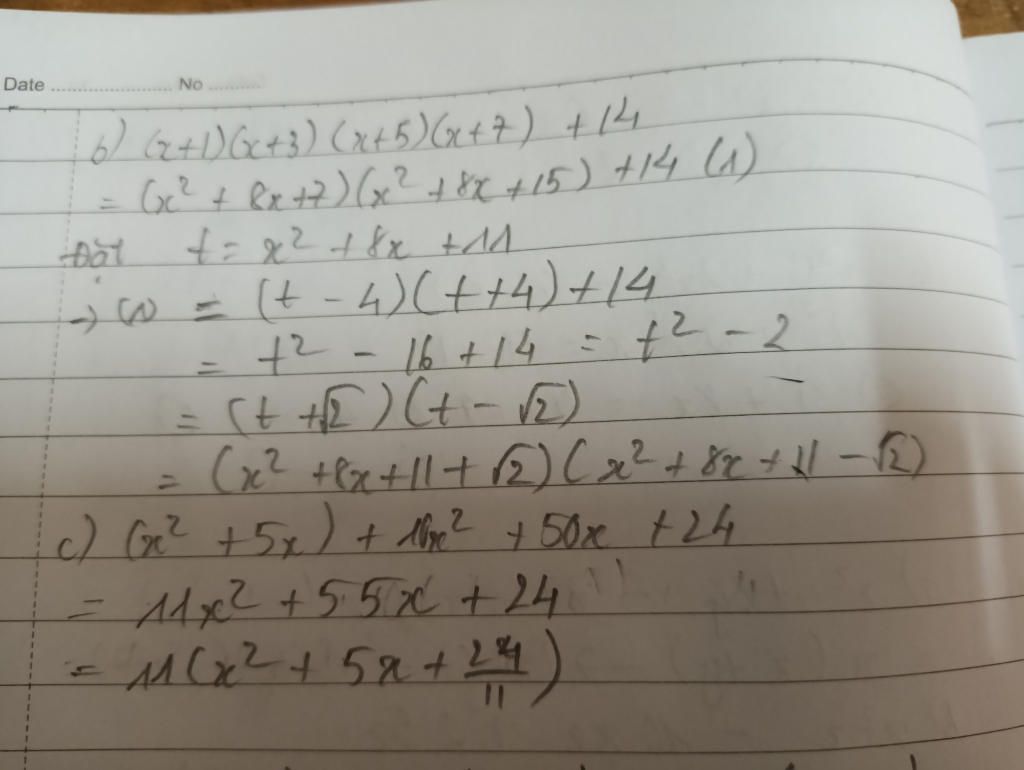 Date ........................ No ..........
b) (x+1)(x+3)(x+5)(x+7) + 14
= (x² + 8x+7)(x² + 8x +15) + 14 (1)
Đặt t = x² + 8x + 11
→ (1) = (t - 4)(t + 4) + 14
= t² - 16 + 14 = t² - 2
= (t + √2)(t - √2)
= (x² + 8x + 11 + √2)(x² + 8x + 11 - √2)
c) (x² + 5x) + 10x² + 50x + 24
= 11x² + 55x + 24
= 11(x² + 5x + 24/11)